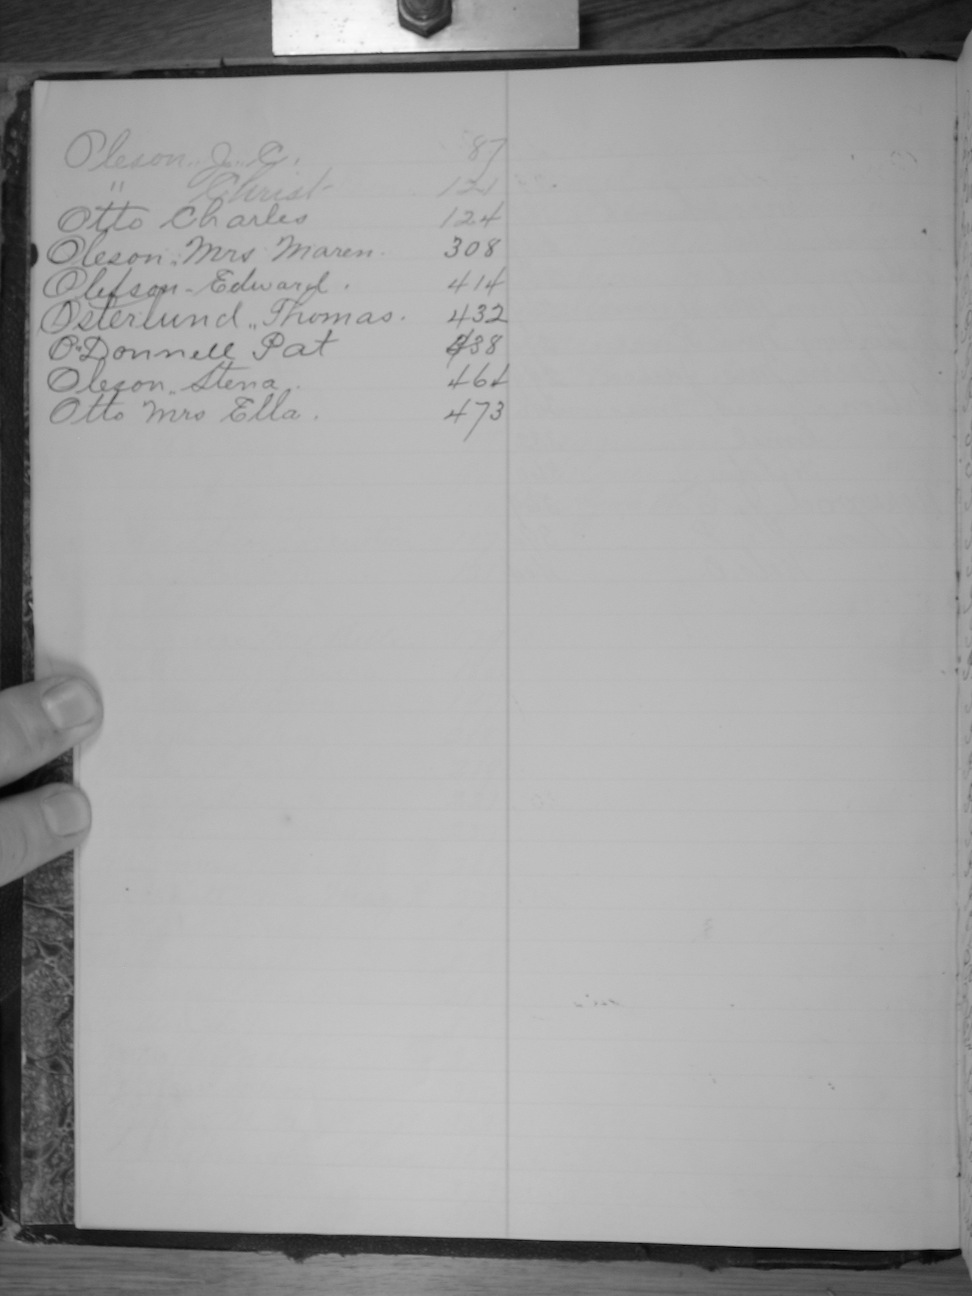 Oleson J. C. 87
" Christ 121
Otto Charles 124
Oleson, Mrs Maren. 308
Olefson - Edward. 414
Osterlund, Thomas. 432
O'Donnell Pat 438
Oleson, Stena. 461
Otto Mrs Ella. 473